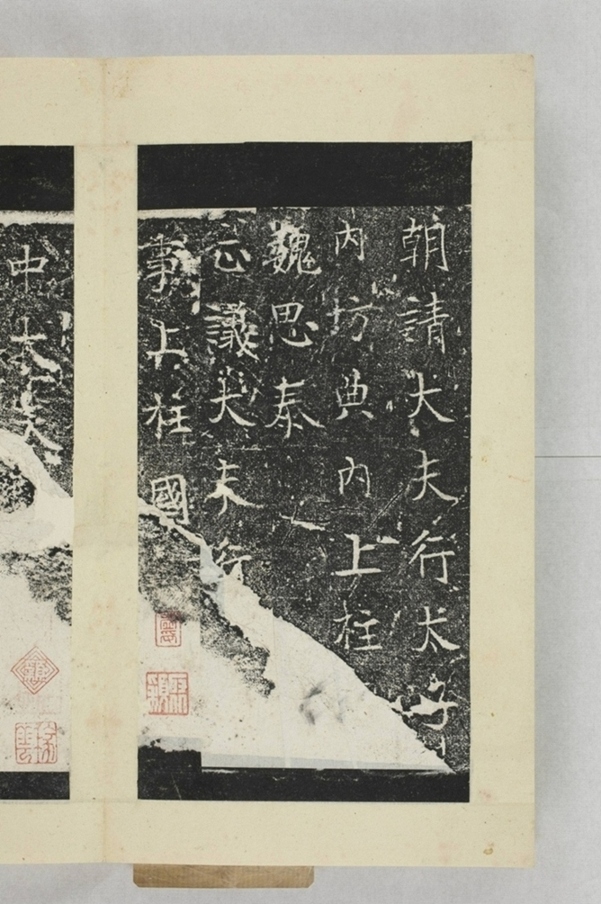 朝請大夫行太子
內坊典內上柱
魏思泰
正議大夫行
事上柱國
中大夫